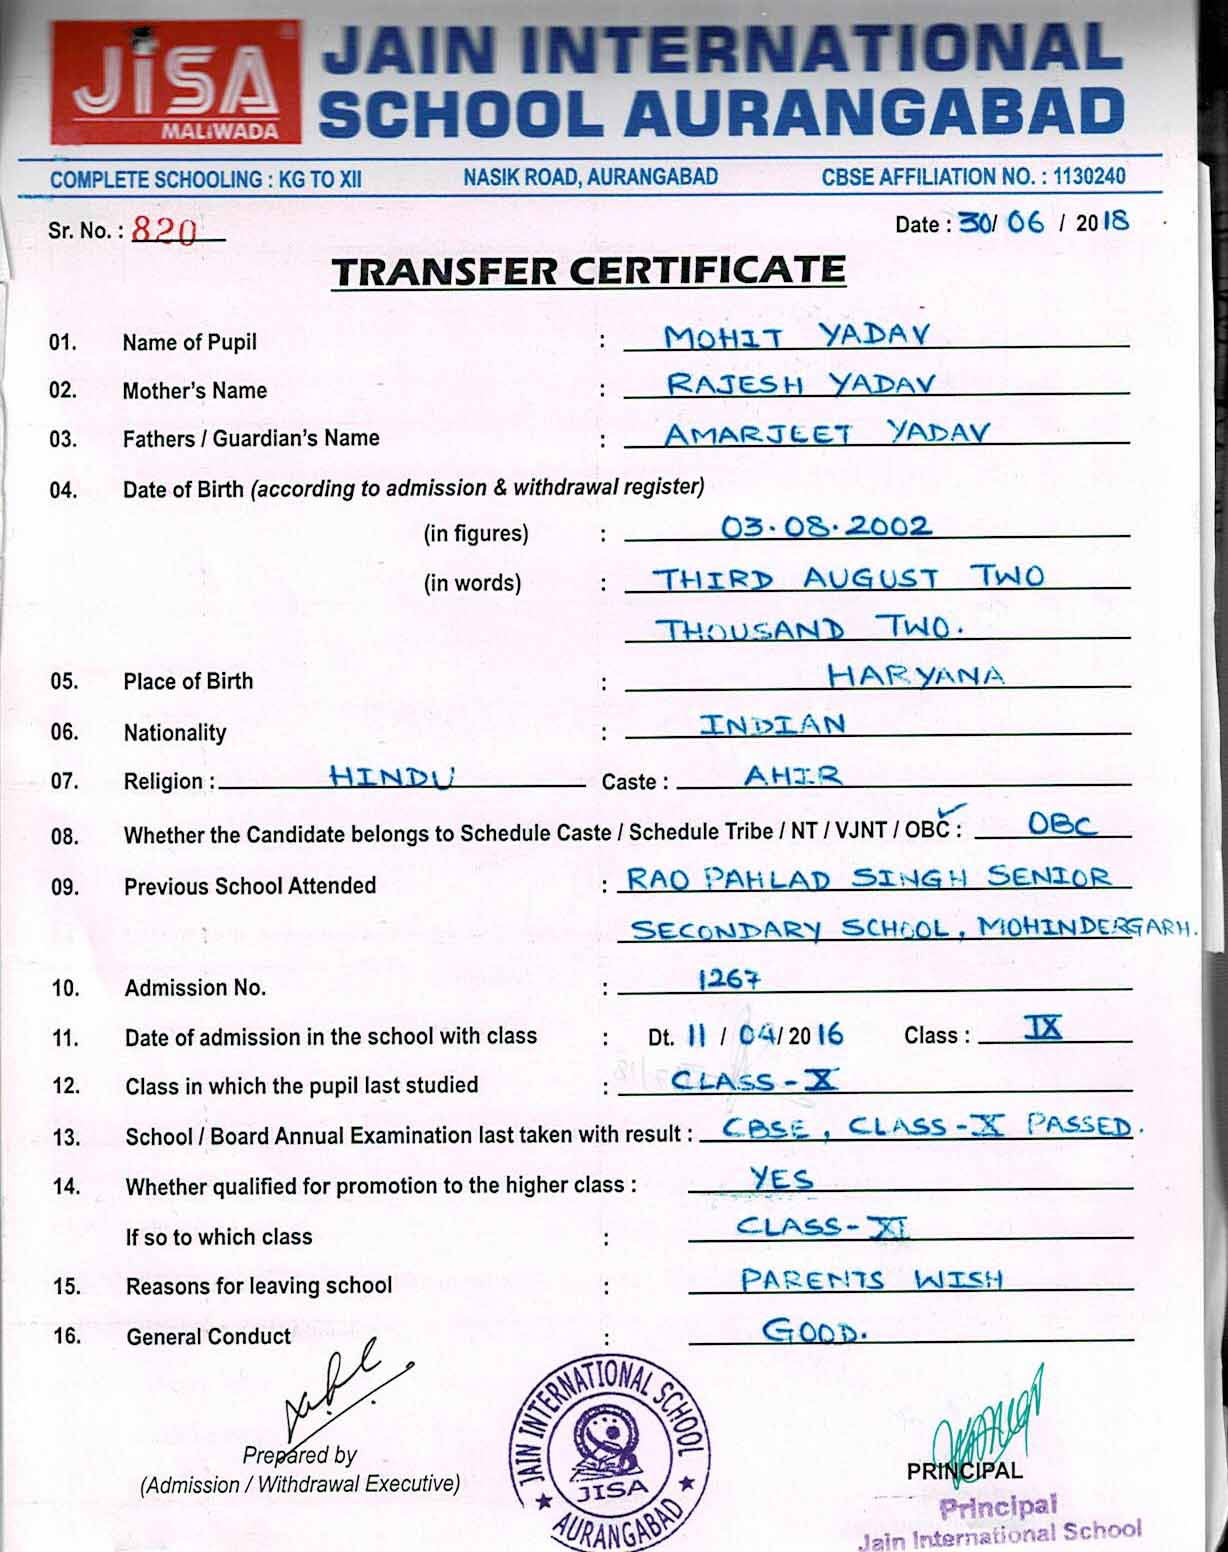 JiSA
MALiWADA
JAIN INTERNATIONAL
SCHOOL AURANGABAD
COMPLETE SCHOOLING : KG TO XII NASIK ROAD, AURANGABAD CBSE AFFILIATION NO. : 1130240
Sr. No. : 820 Date : 30/ 06 / 2018
TRANSFER CERTIFICATE
01. Name of Pupil : MOHIT YADAV
02. Mother's Name : RAJESH YADAV
03. Fathers / Guardian's Name : AMARJEET YADAV
04. Date of Birth (according to admission & withdrawal register)
(in figures) : 03.08.2002
(in words) : THIRD AUGUST TWO
THOUSAND TWO.
05. Place of Birth : HARYANA
06. Nationality : INDIAN
07. Religion : HINDU Caste : AHIR
08. Whether the Candidate belongs to Schedule Caste / Schedule Tribe / NT / VJNT / OBC : OBC
09. Previous School Attended : RAO PAHLAD SINGH SENIOR
SECONDARY SCHOOL, MOHINDERGARH.
10. Admission No. : 1267
11. Date of admission in the school with class : Dt. 11 / 04/ 2016 Class : IX
12. Class in which the pupil last studied : CLASS - X
13. School / Board Annual Examination last taken with result : CBSE, CLASS - X PASSED.
14. Whether qualified for promotion to the higher class : YES
If so to which class : CLASS - XI
15. Reasons for leaving school : PARENTS WISH
16. General Conduct : GOOD.
Prepared by
(Admission / Withdrawal Executive)
JAIN INTERNATIONAL SCHOOL
JISA
AURANGABAD
PRINCIPAL
Principal
Jain International School